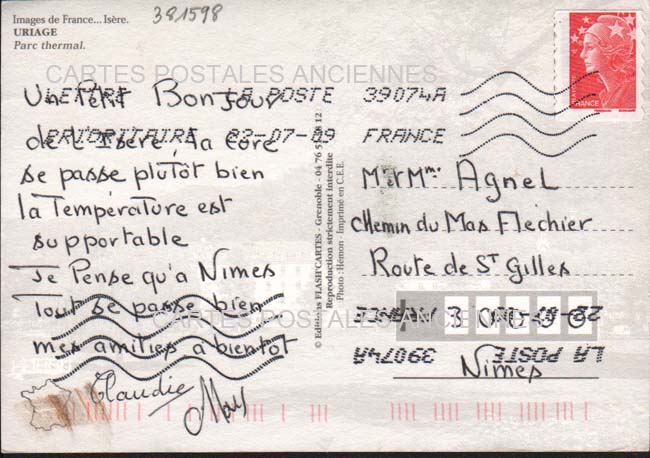 Images de France... Isère.
URIAGE
Parc thermal.
381598
CARTES POSTALES ANCIENNES
LETTRE LA POSTE 39074A
PRIORITAIRE 22-07-09 FRANCE
Un Petit Bonjour
de L'Isère, la Cure
se passe plutôt bien
la Température est
supportable
Je Pense qu'a Nimes
Tout se passe bien
mes amitiés a bientot
Claudie
© Editions FLASH'CARTES - Grenoble - 04 76 51 12
Reproduction strictement interdite
Photo : Hémon - Imprimé en C.E.E.
FRANCE
Mr et Mme Agnel
Chemin du Mas Flechier
Route de St Gilles
30900
Nimes
CARTES POSTALES ANCIENNES
LA POSTE 39074A
FRANCE